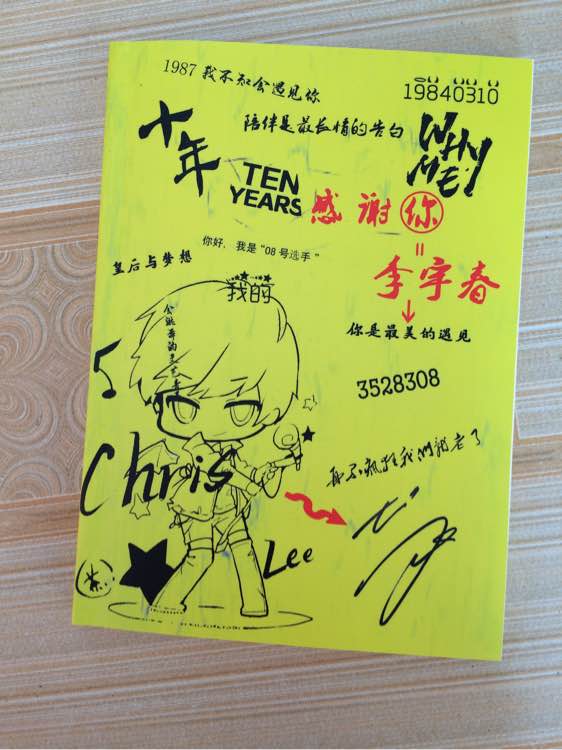 1987 我不知会遇见你
19840310
陪伴是最长情的告白
WHY ME!
十年
TEN YEARS
感谢你
=
李宇春
↓
你好，我是“08号选手”
皇后与梦想
我的
会跳舞的文艺青年
你是最美的遇见
3528308
5
Chris
Lee
再不疯狂我们就老了